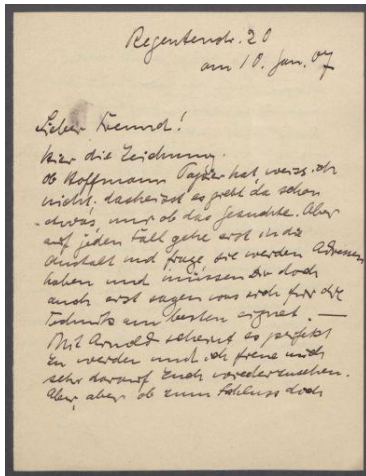 Regentenstr. 20
am 10. Jan. 07
Lieber Freund!
hier die Zeichnung.
Ob Hoffmann Papier hat, weiss ich
nicht, das heisst es giebt da schon
etwas, nur ob das gesuchte. Aber
auf jeden Fall gehe erst in die
Anstalt und frage sie werden Adressen
haben und müssen Dir doch
auch erst sagen was sich für die
Technik am besten eignet. —
Mit Arnold scheint es perfekt
zu werden und ich freue mich
sehr darauf Euch wiederzusehen.
Aber, aber ob zum Schluss doch